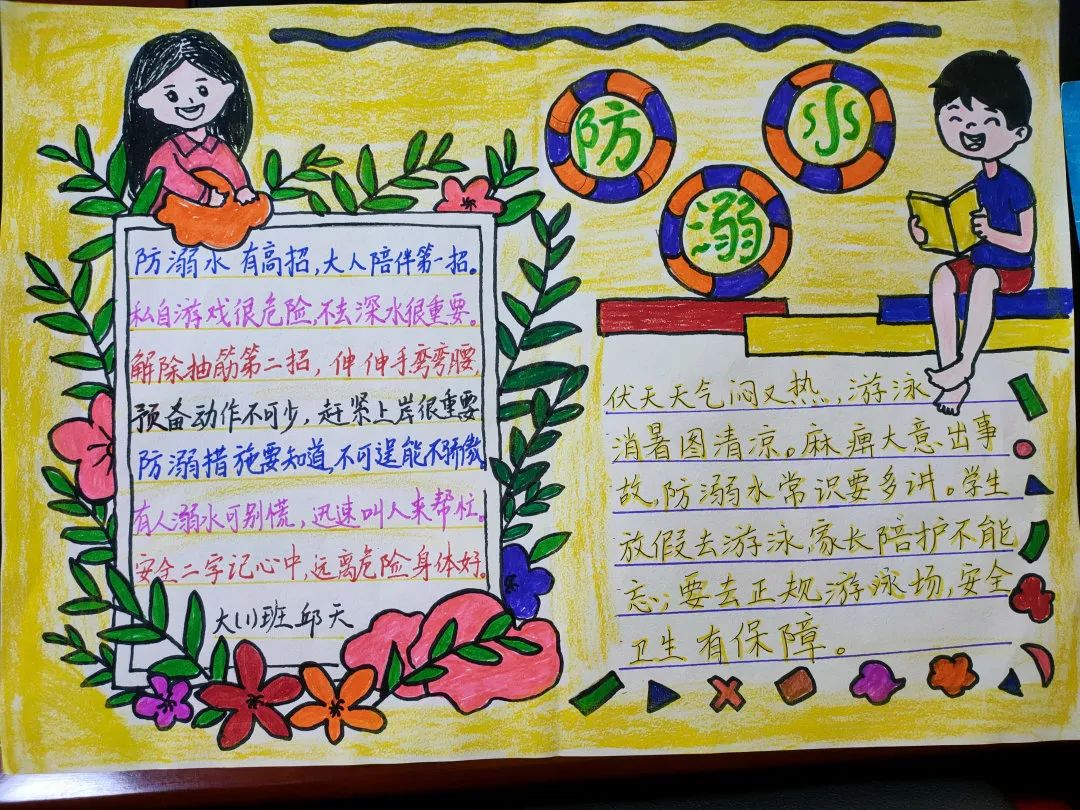 防溺水
防溺水有高招,大人陪伴第一招。
私自游戏很危险,不去深水很重要。
解除抽筋第二招,伸伸手弯弯腰,
预备动作不可少,赶紧上岸很重要
防溺措施要知道,不可逞能不骄傲。
有人溺水可别慌,迅速叫人来帮忙。
安全二字记心中,远离危险身体好。
大(1)班 邱天
伏天天气闷又热,游泳
消暑图清凉。麻痹大意出事
故,防溺水常识要多讲。学生
放假去游泳,家长陪护不能
忘;要去正规游泳场,安全
卫生有保障。